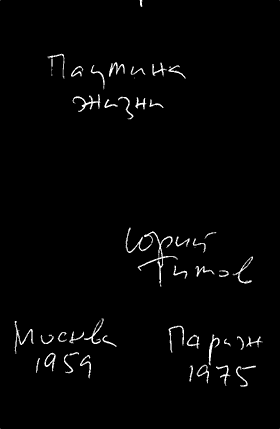 Паутина
жизни
Юрий
Титов
Москва Париж
1959 1975